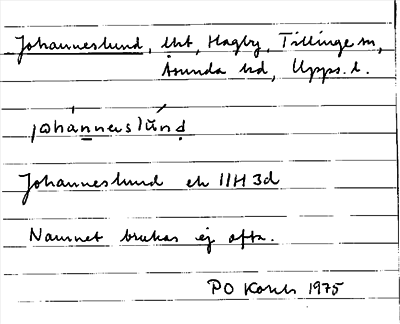 Johanneslund, lht, Hagby, Tillinge sn,
Åsunda hd, Upps. l.
johánnerslúnd
Johanneslund ek 11H 3d
Namnet brukas ej ofta.
PO 1975